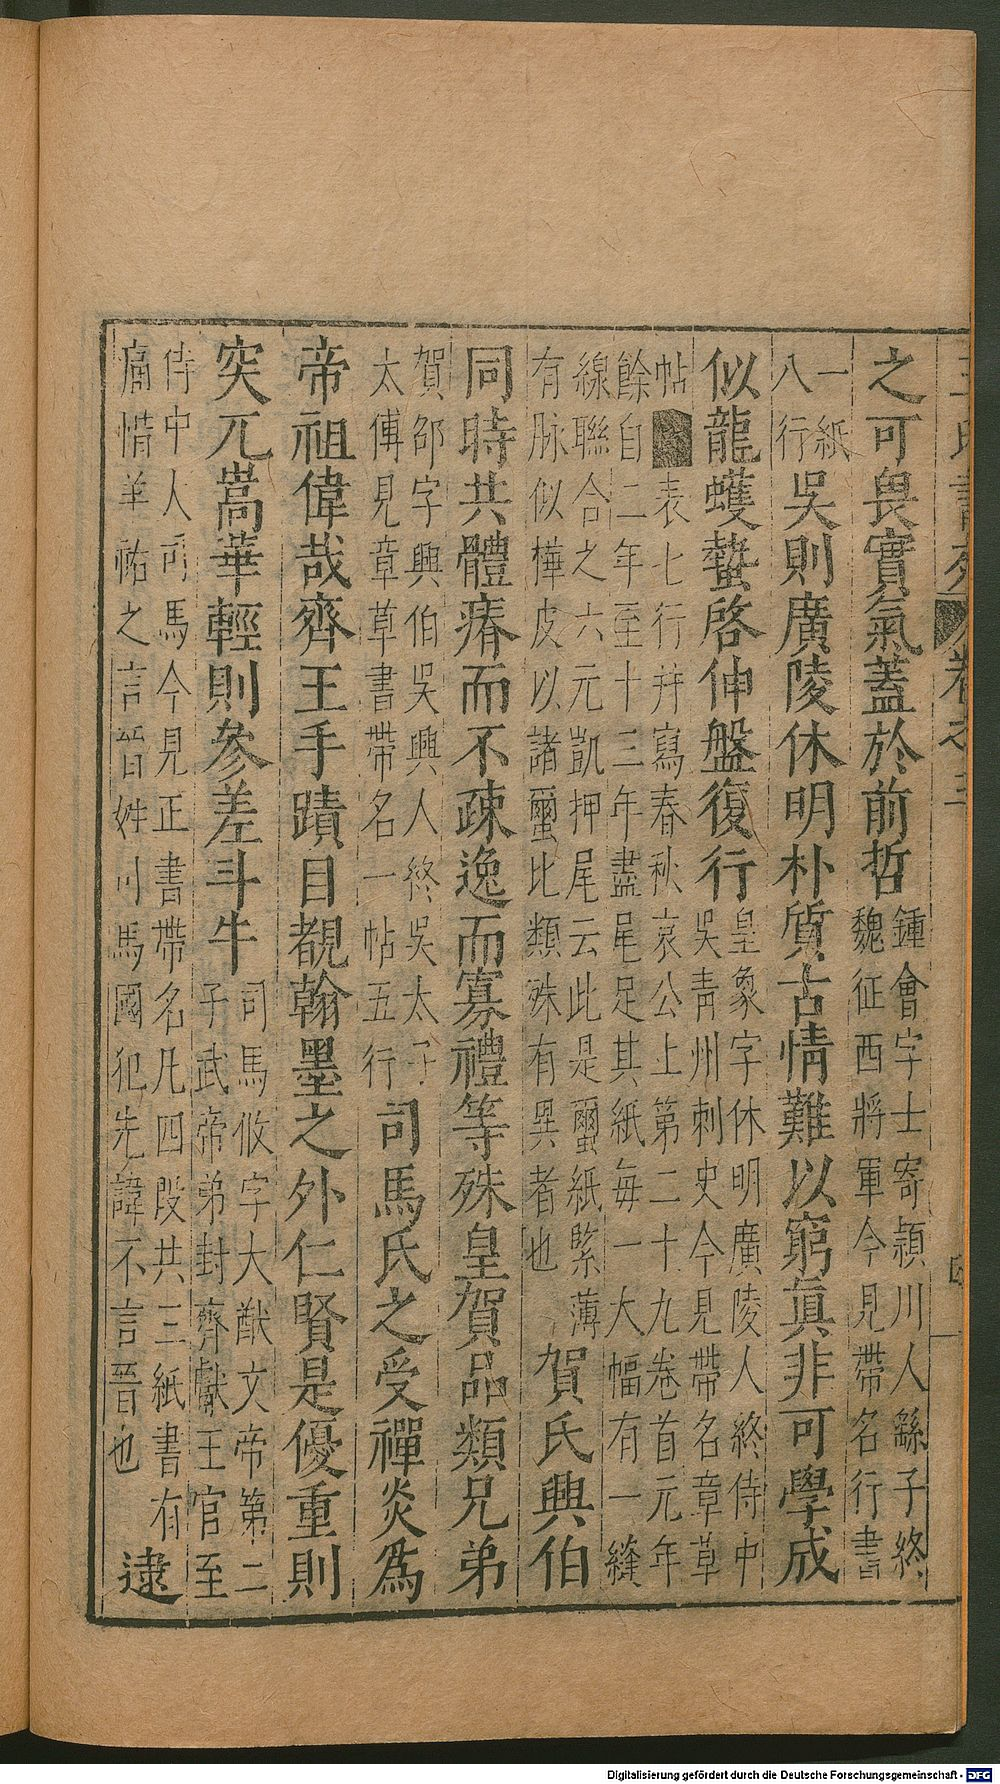 之可畏實氣蓋於前哲
鍾會字士寄頴川人繇子終
魏征西將軍今見帶名行書
一紙
八行
吳則廣陵休明朴質古情難以窮真非可學成
似龍蠖蟄啓伸盤復行
皇象字休明廣陵人終侍中
吳青州刺史今見帶名章草
帖表七行并寫春秋哀公上第二十九卷首元年
餘自二年至十三年盡尾足其紙每一大幅有一縫
線聯合之六元凱押尾云此是蠒紙緊薄
有脉似樺皮以諸蠒比類殊有異者也
賀氏興伯
同時共體瘠而不疎逸而寡禮等殊皇賀品類兄弟
賀邵字興伯吳興人終吳太子
太傅見章草書帶名一帖五行
司馬氏之受禪炎爲
帝祖偉哉齊王手蹟目覩翰墨之外仁賢是優重則
突兀嵩華輕則參差斗牛
司馬攸字大猷文帝第二
子武帝弟封齊獻王官至
侍中人司馬今見正書帶名凡四段共三紙書有
痛惜羊祜之言晉姓司馬國犯先諱不言晉也
逮
Digitalisierung gefördert durch die Deutsche Forschungsgemeinschaft - DFG